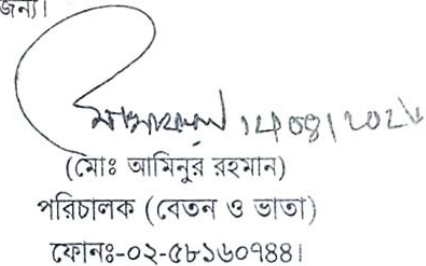 জন্য।
(মোঃ আমিনুর রহমান)
পরিচালক (বেতন ও ভাতা)
ফোনঃ-০২-৫৮১৬০৭৪৪।